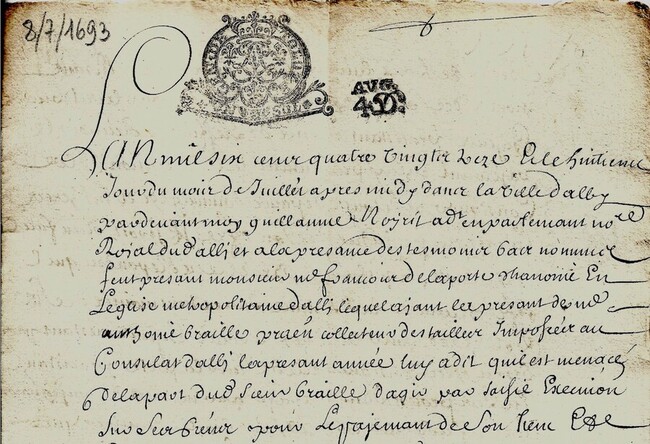 8/7/1693
AVG.
L'AN mil six cens quatre vingtz treze Et le huitieme
Jour du mois de Juillet apres midy dans la ville dalby
par devant moy guillaume Noyrit adt en parlement nore
Royal dud alby et a la presance des tesmoins bas nommes
feut presant monsieur me francois de laporte chanoine En
Leglise metropolitaine dalbi lequel ajant les presant de me
anthonie braille collecteur des tailles Imposées au
Consulat dalbi la presant année luy a dit quil est menacé
de la part dud Sieur braille dagir par saisie Execution
sur ses biens pour Le pajemant de son Et de